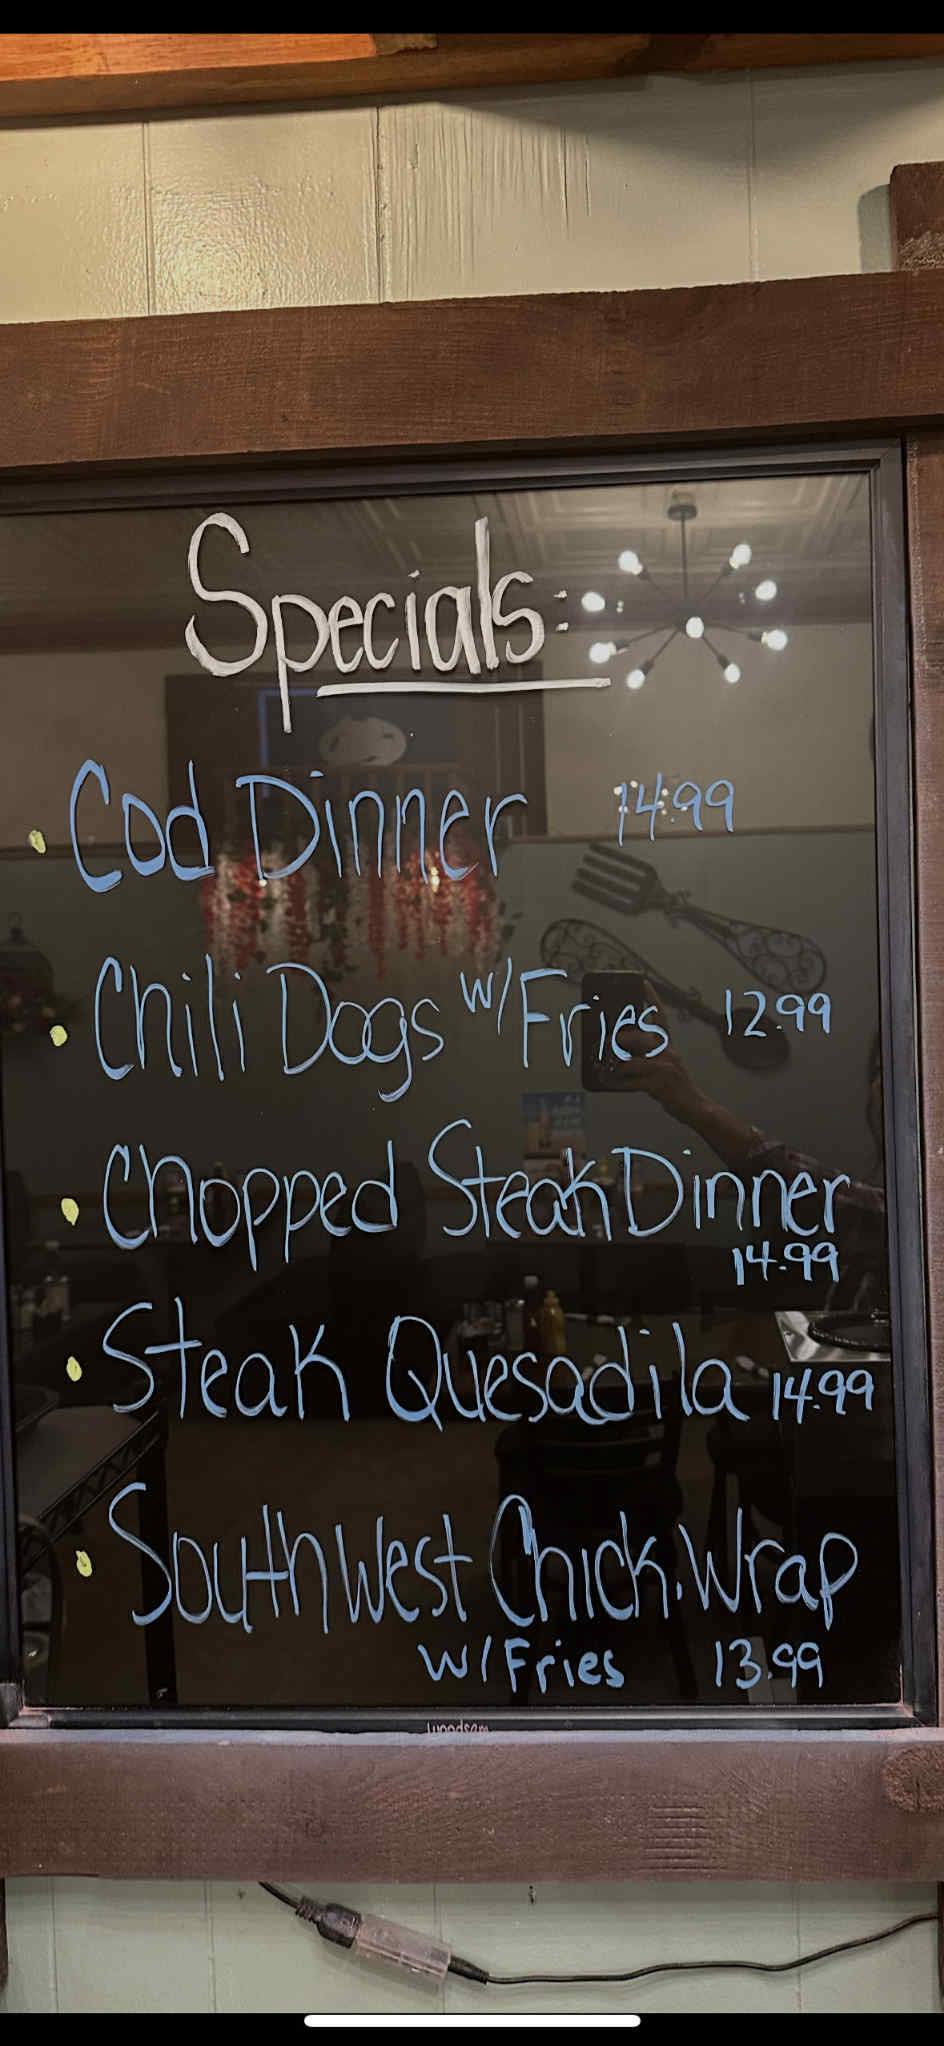 Specials:
Cod Dinner 14.99
Chili Dogs w/Fries 12.99
Chopped Steak Dinner
14.99
Steak Quesadila 14.99
Southwest Chick. Wrap
w/Fries 13.99
woodsam